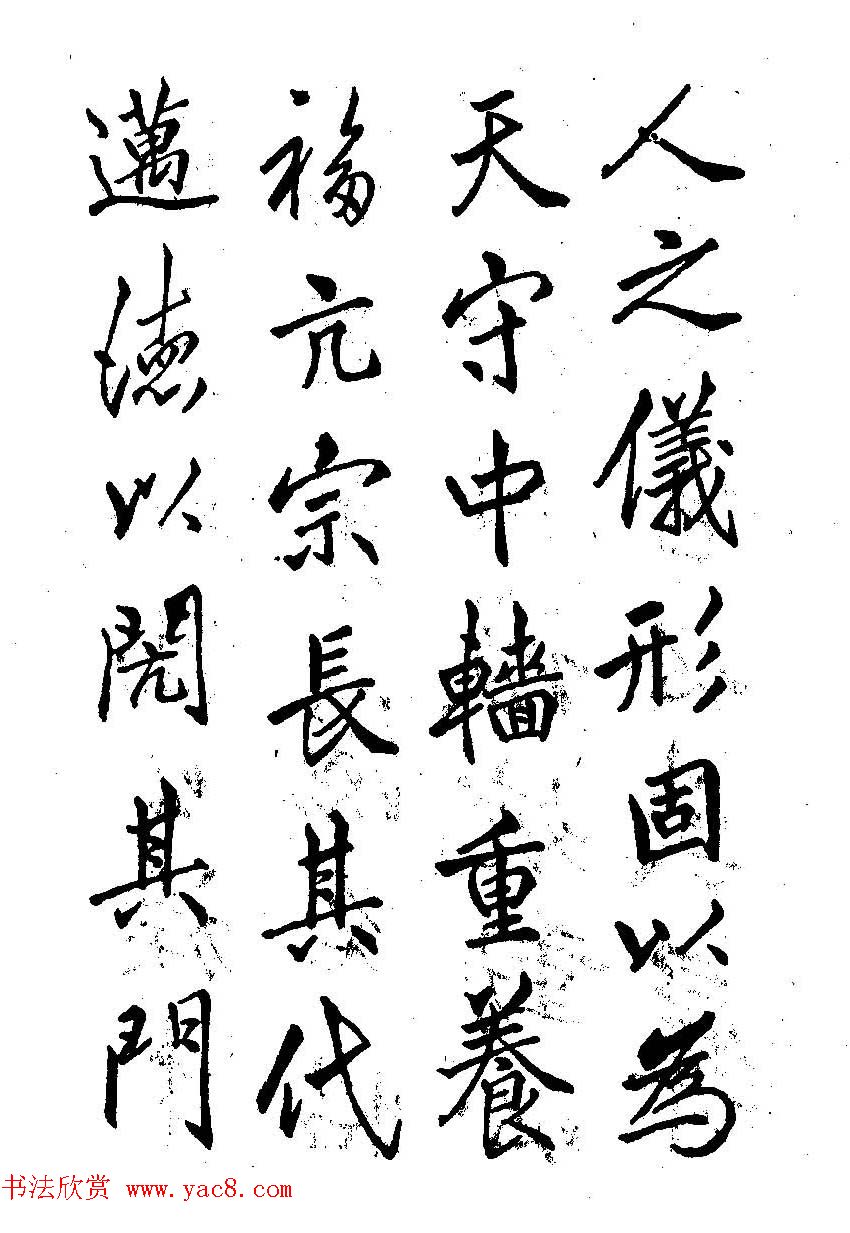 人之儀形固以為
天守中轖重養
福亢宗長其代
邁德以閌其門
书法欣赏 www.yac8.com